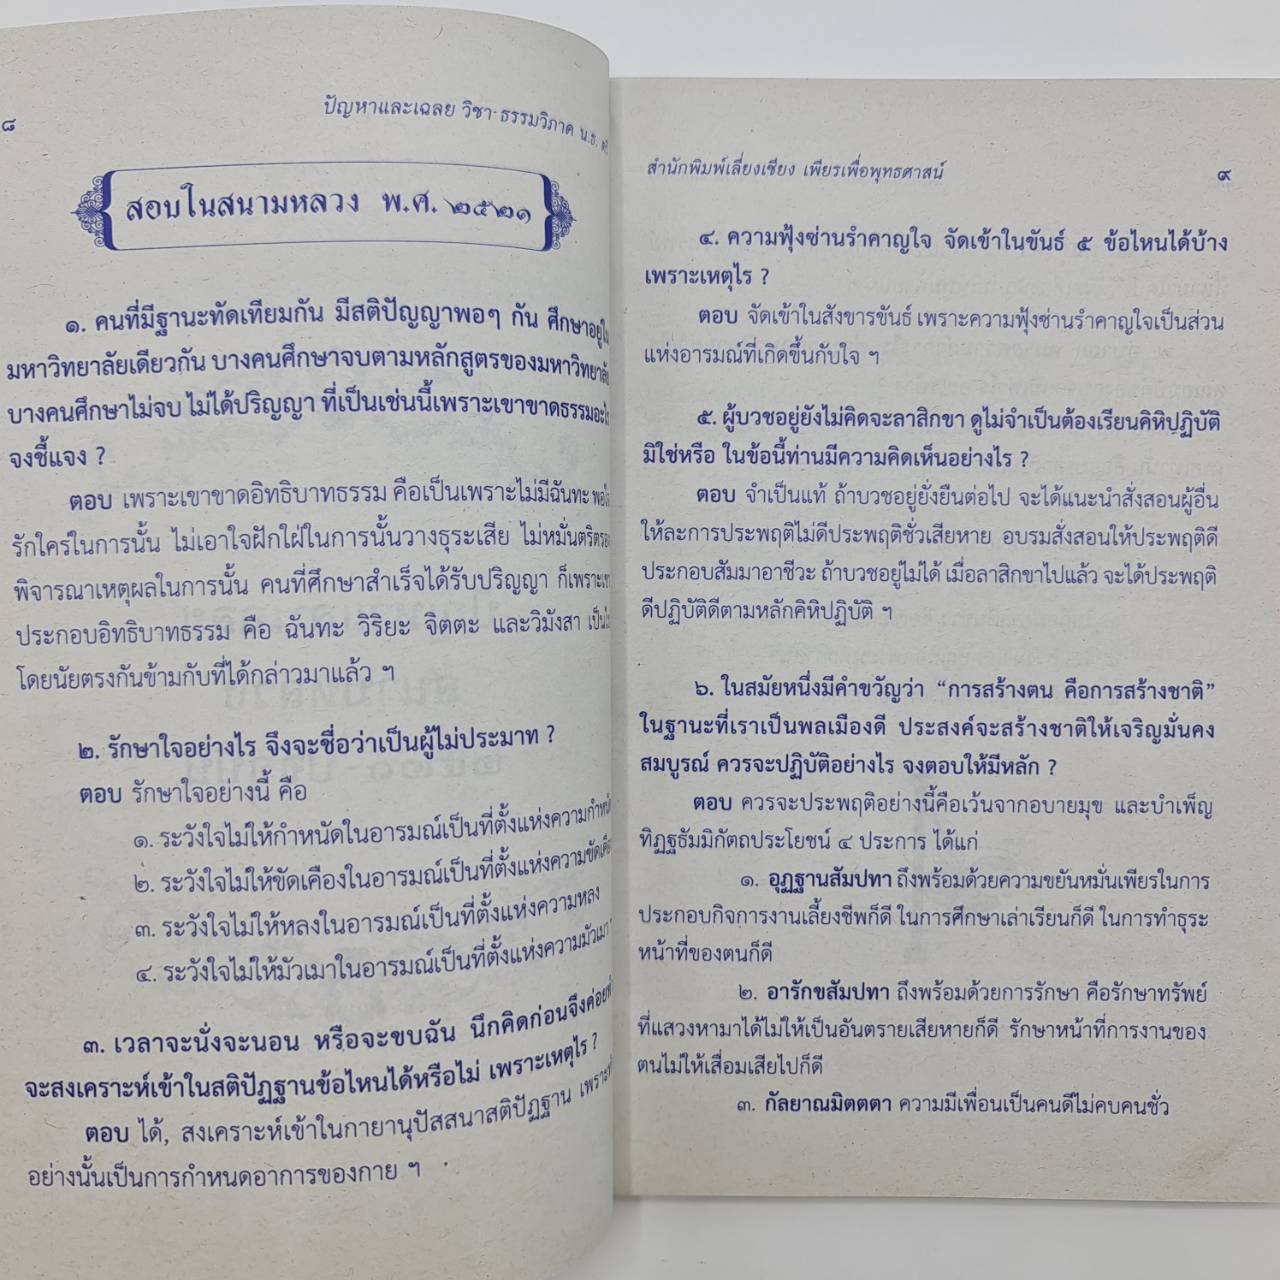 ๘
ปัญหาและเฉลย วิชา-ธรรมวิภาค น.ธ.
สอบในสนามหลวง พ.ศ. ๒๕๒๑
๑. คนที่มีฐานะทัดเทียมกัน มีสติปัญญาพอๆ กัน ศึกษาอยู่ใน
มหาวิทยาลัยเดียวกัน บางคนศึกษาจบตามหลักสูตรของมหาวิทยาลัย
บางคนศึกษาไม่จบ ไม่ได้ปริญญา ที่เป็นเช่นนี้เพราะเขาขาดธรรมอะไร
จงชี้แจง ?
ตอบ เพราะเขาขาดอิทธิบาทธรรม คือเป็นเพราะไม่มีฉันทะ พอใจ
รักใคร่ในการนั้น ไม่เอาใจฝักใฝ่ในการนั้นวางธุระเสีย ไม่หมั่นตริตรอง
พิจารณาเหตุผลในการนั้น คนที่ศึกษาสำเร็จได้รับปริญญา ก็เพราะเขา
ประกอบอิทธิบาทธรรม คือ ฉันทะ วิริยะ จิตตะ และวิมังสา
โดยนัยตรงกันข้ามกับที่ได้กล่าวมาแล้ว ฯ
๒. รักษาใจอย่างไร จึงจะชื่อว่าเป็นผู้ไม่ประมาท ?
ตอบ รักษาใจอย่างนี้ คือ
๑. ระวังใจไม่ให้กำหนัดในอารมณ์เป็นที่ตั้งแห่งความกำหนัด
๒. ระวังใจไม่ให้ขัดเคืองในอารมณ์เป็นที่ตั้งแห่งความขัดเคือง
๓. ระวังใจไม่ให้หลงในอารมณ์เป็นที่ตั้งแห่งความหลง
๔. ระวังใจไม่ให้มัวเมาในอารมณ์เป็นที่ตั้งแห่งความมัวเมา
๓. เวลาจะนั่งจะนอน หรือจะขบฉัน นึกคิดก่อนจึงค่อย
จะสงเคราะห์เข้าในสติปัฏฐานข้อไหนได้หรือไม่ เพราะเหตุไร ?
ตอบ ได้, สงเคราะห์เข้าในกายานุปัสสนาสติปัฏฐาน เพราะ
อย่างนั้นเป็นการกำหนดอาการของกาย ฯ
สำนักพิมพ์เลี่ยงเชียง เพียรเพื่อพุทธศาสน์ ๙
๔. ความฟุ้งซ่านรำคาญใจ จัดเข้าในขันธ์ ๕ ข้อไหนได้บ้าง
เพราะเหตุไร ?
ตอบ จัดเข้าในสังขารขันธ์ เพราะความฟุ้งซ่านรำคาญใจเป็นส่วน
แห่งอารมณ์ที่เกิดขึ้นกับใจ ฯ
๕. ผู้บวชอยู่ยังไม่คิดจะลาสิกขา ดูไม่จำเป็นต้องเรียนคิหิปฏิบัติ
มิใช่หรือ ในข้อนี้ท่านมีความคิดเห็นอย่างไร ?
ตอบ จำเป็นแท้ ถ้าบวชอยู่ยั่งยืนต่อไป จะได้แนะนำสั่งสอนผู้อื่น
ให้ละการประพฤติไม่ดีประพฤติชั่วเสียหาย อบรมสั่งสอนให้ประพฤติดี
ประกอบสัมมาอาชีวะ ถ้าบวชอยู่ไม่ได้ เมื่อลาสิกขาไปแล้ว จะได้ประพฤติ
ดีปฏิบัติดีตามหลักคิหิปฏิบัติ ฯ
๖. ในสมัยหนึ่งมีคำขวัญว่า “การสร้างตน คือการสร้างชาติ”
ในฐานะที่เราเป็นพลเมืองดี ประสงค์จะสร้างชาติให้เจริญมั่นคง
สมบูรณ์ ควรจะปฏิบัติอย่างไร จงตอบให้มีหลัก ?
ตอบ ควรจะประพฤติอย่างนี้คือเว้นจากอบายมุข และบำเพ็ญ
ทิฏฐธัมมิกัตถประโยชน์ ๔ ประการ ได้แก่
๑. อุฏฐานสัมปทา ถึงพร้อมด้วยความขยันหมั่นเพียรในการ
ประกอบกิจการงานเลี้ยงชีพก็ดี ในการศึกษาเล่าเรียนก็ดี ในการทำธุระ
หน้าที่ของตนก็ดี
๒. อารักขสัมปทา ถึงพร้อมด้วยการรักษา คือรักษาทรัพย์
ที่แสวงหามาได้ไม่ให้เป็นอันตรายเสียหายก็ดี รักษาหน้าที่การงานของ
ตนไม่ให้เสื่อมเสียไปก็ดี
๓. กัลยาณมิตตตา ความมีเพื่อนเป็นคนดีไม่คบคนชั่ว